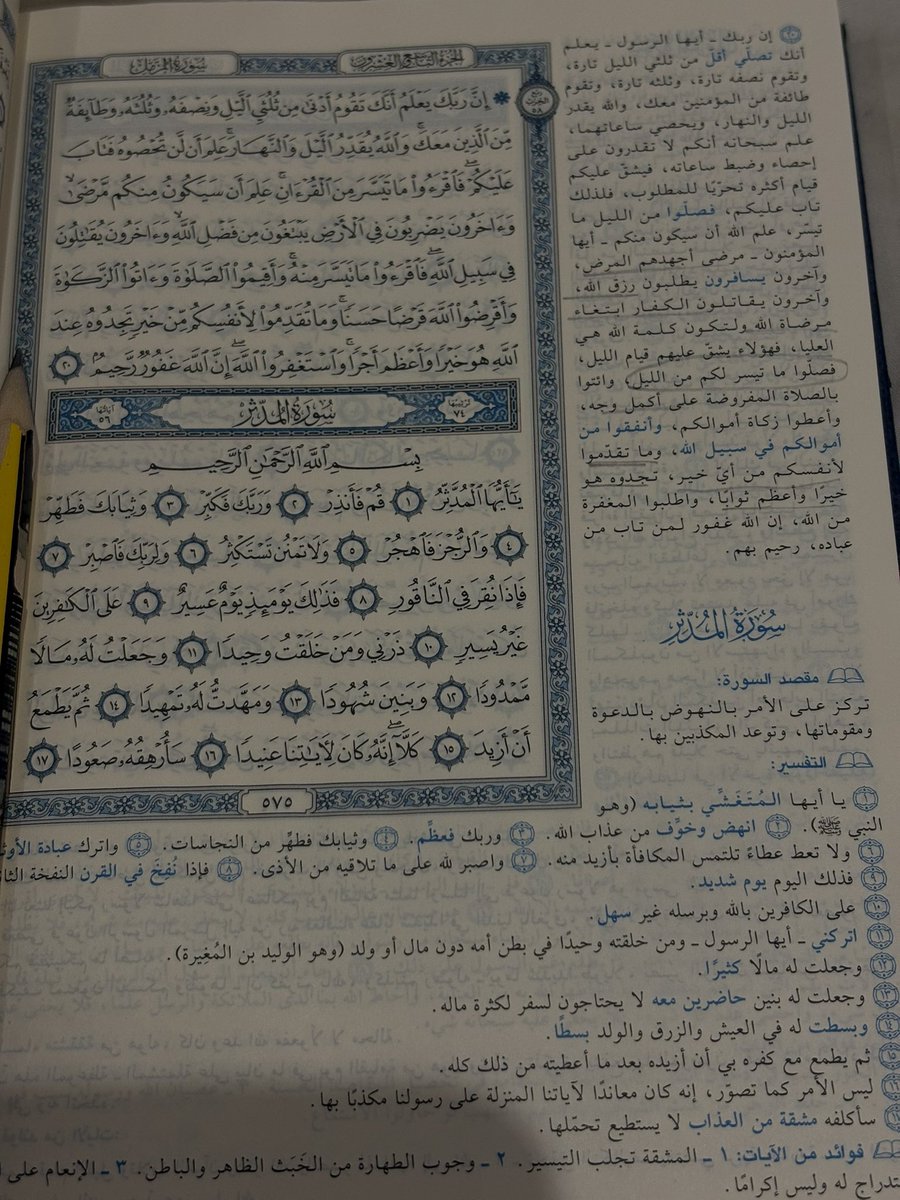 سورة المزمل
الجزء التاسع والعشرون
۞ إِنَّ رَبَّكَ يَعْلَمُ أَنَّكَ تَقُومُ أَدْنَىٰ مِن ثُلُثَيِ ٱلَّيْلِ وَنِصْفَهُۥ وَثُلُثَهُۥ وَطَآئِفَةٌ
مِّنَ ٱلَّذِينَ مَعَكَۚ وَٱللَّهُ يُقَدِّرُ ٱلَّيْلَ وَٱلنَّهَارَۚ عَلِمَ أَن لَّن تُحْصُوهُ فَتَابَ
عَلَيْكُمْۖ فَٱقْرَءُوا۟ مَا تَيَسَّرَ مِنَ ٱلْقُرْءَانِۚ عَلِمَ أَن سَيَكُونُ مِنكُم مَّرْضَىٰۙ
وَءَاخَرُونَ يَضْرِبُونَ فِى ٱلْأَرْضِ يَبْتَغُونَ مِن فَضْلِ ٱللَّهِۙ وَءَاخَرُونَ يُقَٰتِلُونَ
فِى سَبِيلِ ٱللَّهِۖ فَٱقْرَءُوا۟ مَا تَيَسَّرَ مِنْهُۚ وَأَقِيمُوا۟ ٱلصَّلَوٰةَ وَءَاتُوا۟ ٱلزَّكَوٰةَ
وَأَقْرِضُوا۟ ٱللَّهَ قَرْضًا حَسَنًاۚ وَمَا تُقَدِّمُوا۟ لِأَنفُسِكُم مِّنْ خَيْرٍ تَجِدُوهُ عِندَ
ٱللَّهِ هُوَ خَيْرًا وَأَعْظَمَ أَجْرًاۚ وَٱسْتَغْفِرُوا۟ ٱللَّهَۖ إِنَّ ٱللَّهَ غَفُورٌ رَّحِيمٌۢ ٢٠
ترتيبها ٧٤ سورة المدثر آياتها ٥٦
بِسْمِ ٱللَّهِ ٱلرَّحْمَٰنِ ٱلرَّحِيمِ
يَٰٓأَيُّهَا ٱلْمُدَّثِّرُ ١ قُمْ فَأَنذِرْ ٢ وَرَبَّكَ فَكَبِّرْ ٣ وَثِيَابَكَ فَطَهِّرْ
٤ وَٱلرُّجْزَ فَٱهْجُرْ ٥ وَلَا تَمْنُن تَسْتَكْثِرُ ٦ وَلِرَبِّكَ فَٱصْبِرْ ٧
فَإِذَا نُقِرَ فِى ٱلنَّاقُورِ ٨ فَذَٰلِكَ يَوْمَئِذٍ يَوْمٌ عَسِيرٌ ٩ عَلَى ٱلْكَٰفِرِينَ
غَيْرُ يَسِيرٍ ١٠ ذَرْنِى وَمَنْ خَلَقْتُ وَحِيدًا ١١ وَجَعَلْتُ لَهُۥ مَالًا
مَّمْدُودًا ١٢ وَبَنِينَ شُهُودًا ١٣ وَمَهَّدتُّ لَهُۥ تَمْهِيدًا ١٤ ثُمَّ يَطْمَعُ
أَنْ أَزِيدَ ١٥ كَلَّآۖ إِنَّهُۥ كَانَ لِءَايَٰتِنَا عَنِيدًا ١٦ سَأُرْهِقُهُۥ صَعُودًا ١٧
٥٧٥
إن ربك ـ أيها الرسول ـ يعلم
أنك تصلّي أقلّ من ثلثي الليل تارة،
وتقوم نصفه تارة، وثلثه تارة، وتقوم
طائفة من المؤمنين معك، والله يقدر
الليل والنهار، ويحصي ساعاتهما،
علم سبحانه أنكم لا تقدرون على
إحصاء وضبط ساعاته، فيشقّ عليكم
قيام أكثره تحرّيًا للمطلوب، فلذلك
تاب عليكم، فصلّوا من الليل ما
تيسّر، علم الله أن سيكون منكم ـ أيها
المؤمنون ـ مرضى أجهدهم المرض،
وآخرون يسافرون يطلبون رزق الله،
وآخرون يقاتلون الكفار ابتغاء
مرضاة الله ولتكون كلمة الله هي
العليا، فهؤلاء يشقّ عليهم قيام الليل،
فصلّوا ما تيسر لكم من الليل، وائتوا
بالصلاة المفروضة على أكمل وجه،
وأعطوا زكاة أموالكم، وأنفقوا من
أموالكم في سبيل الله، وما تقدّموا
لأنفسكم من أيّ خير، تجدوه هو
خيرًا وأعظم ثوابًا، واطلبوا المغفرة
من الله، إن الله غفور لمن تاب من
عباده، رحيم بهم.
سورة المدثر
مقصد السورة:
تركز على الأمر بالنهوض بالدعوة
ومقوماتها، وتوعد المكذبين بها.
التفسير:
١ يا أيها المُتَغَشِّي بثيابه (وهو
النبي ﷺ). ٢ انهض وخوِّف من عذاب الله. ٣ وربك فعظِّم. ٤ وثيابك فطهِّر من النجاسات. ٥ واترك عبادة
٦ ولا تعط عطاءً تلتمس المكافأة بأزيد منه. ٧ واصبر لله على ما تلاقيه من الأذى. ٨ فإذا نُفِخَ في القرن النفخة
٩ فذلك اليوم يوم شديد.
١٠ على الكافرين بالله وبرسله غير سهل.
١١ اتركني ـ أيها الرسول ـ ومن خلقته وحيدًا في بطن أمه دون مال أو ولد (وهو الوليد بن المُغِيرة).
١٢ وجعلت له مالًا كثيرًا.
١٣ وجعلت له بنين حاضرين معه لا يحتاجون لسفر لكثرة ماله.
١٤ وبسطت له في العيش والرزق والولد بسطًا.
١٥ ثم يطمع مع كفره بي أن أزيده بعد ما أعطيته من ذلك كله.
١٦ ليس الأمر كما تصوّر، إنه كان معاندًا لآياتنا المنزلة على رسولنا مكذبًا بها.
١٧ سأكلفه مشقة من العذاب لا يستطيع تحمّلها.
فوائد من الآيات: ١ ـ المشقة تجلب التيسير. ٢ ـ وجوب الطهارة من الخَبَث الظاهر والباطن. ٣ ـ الإنعام على
له وليس إكرامًا.